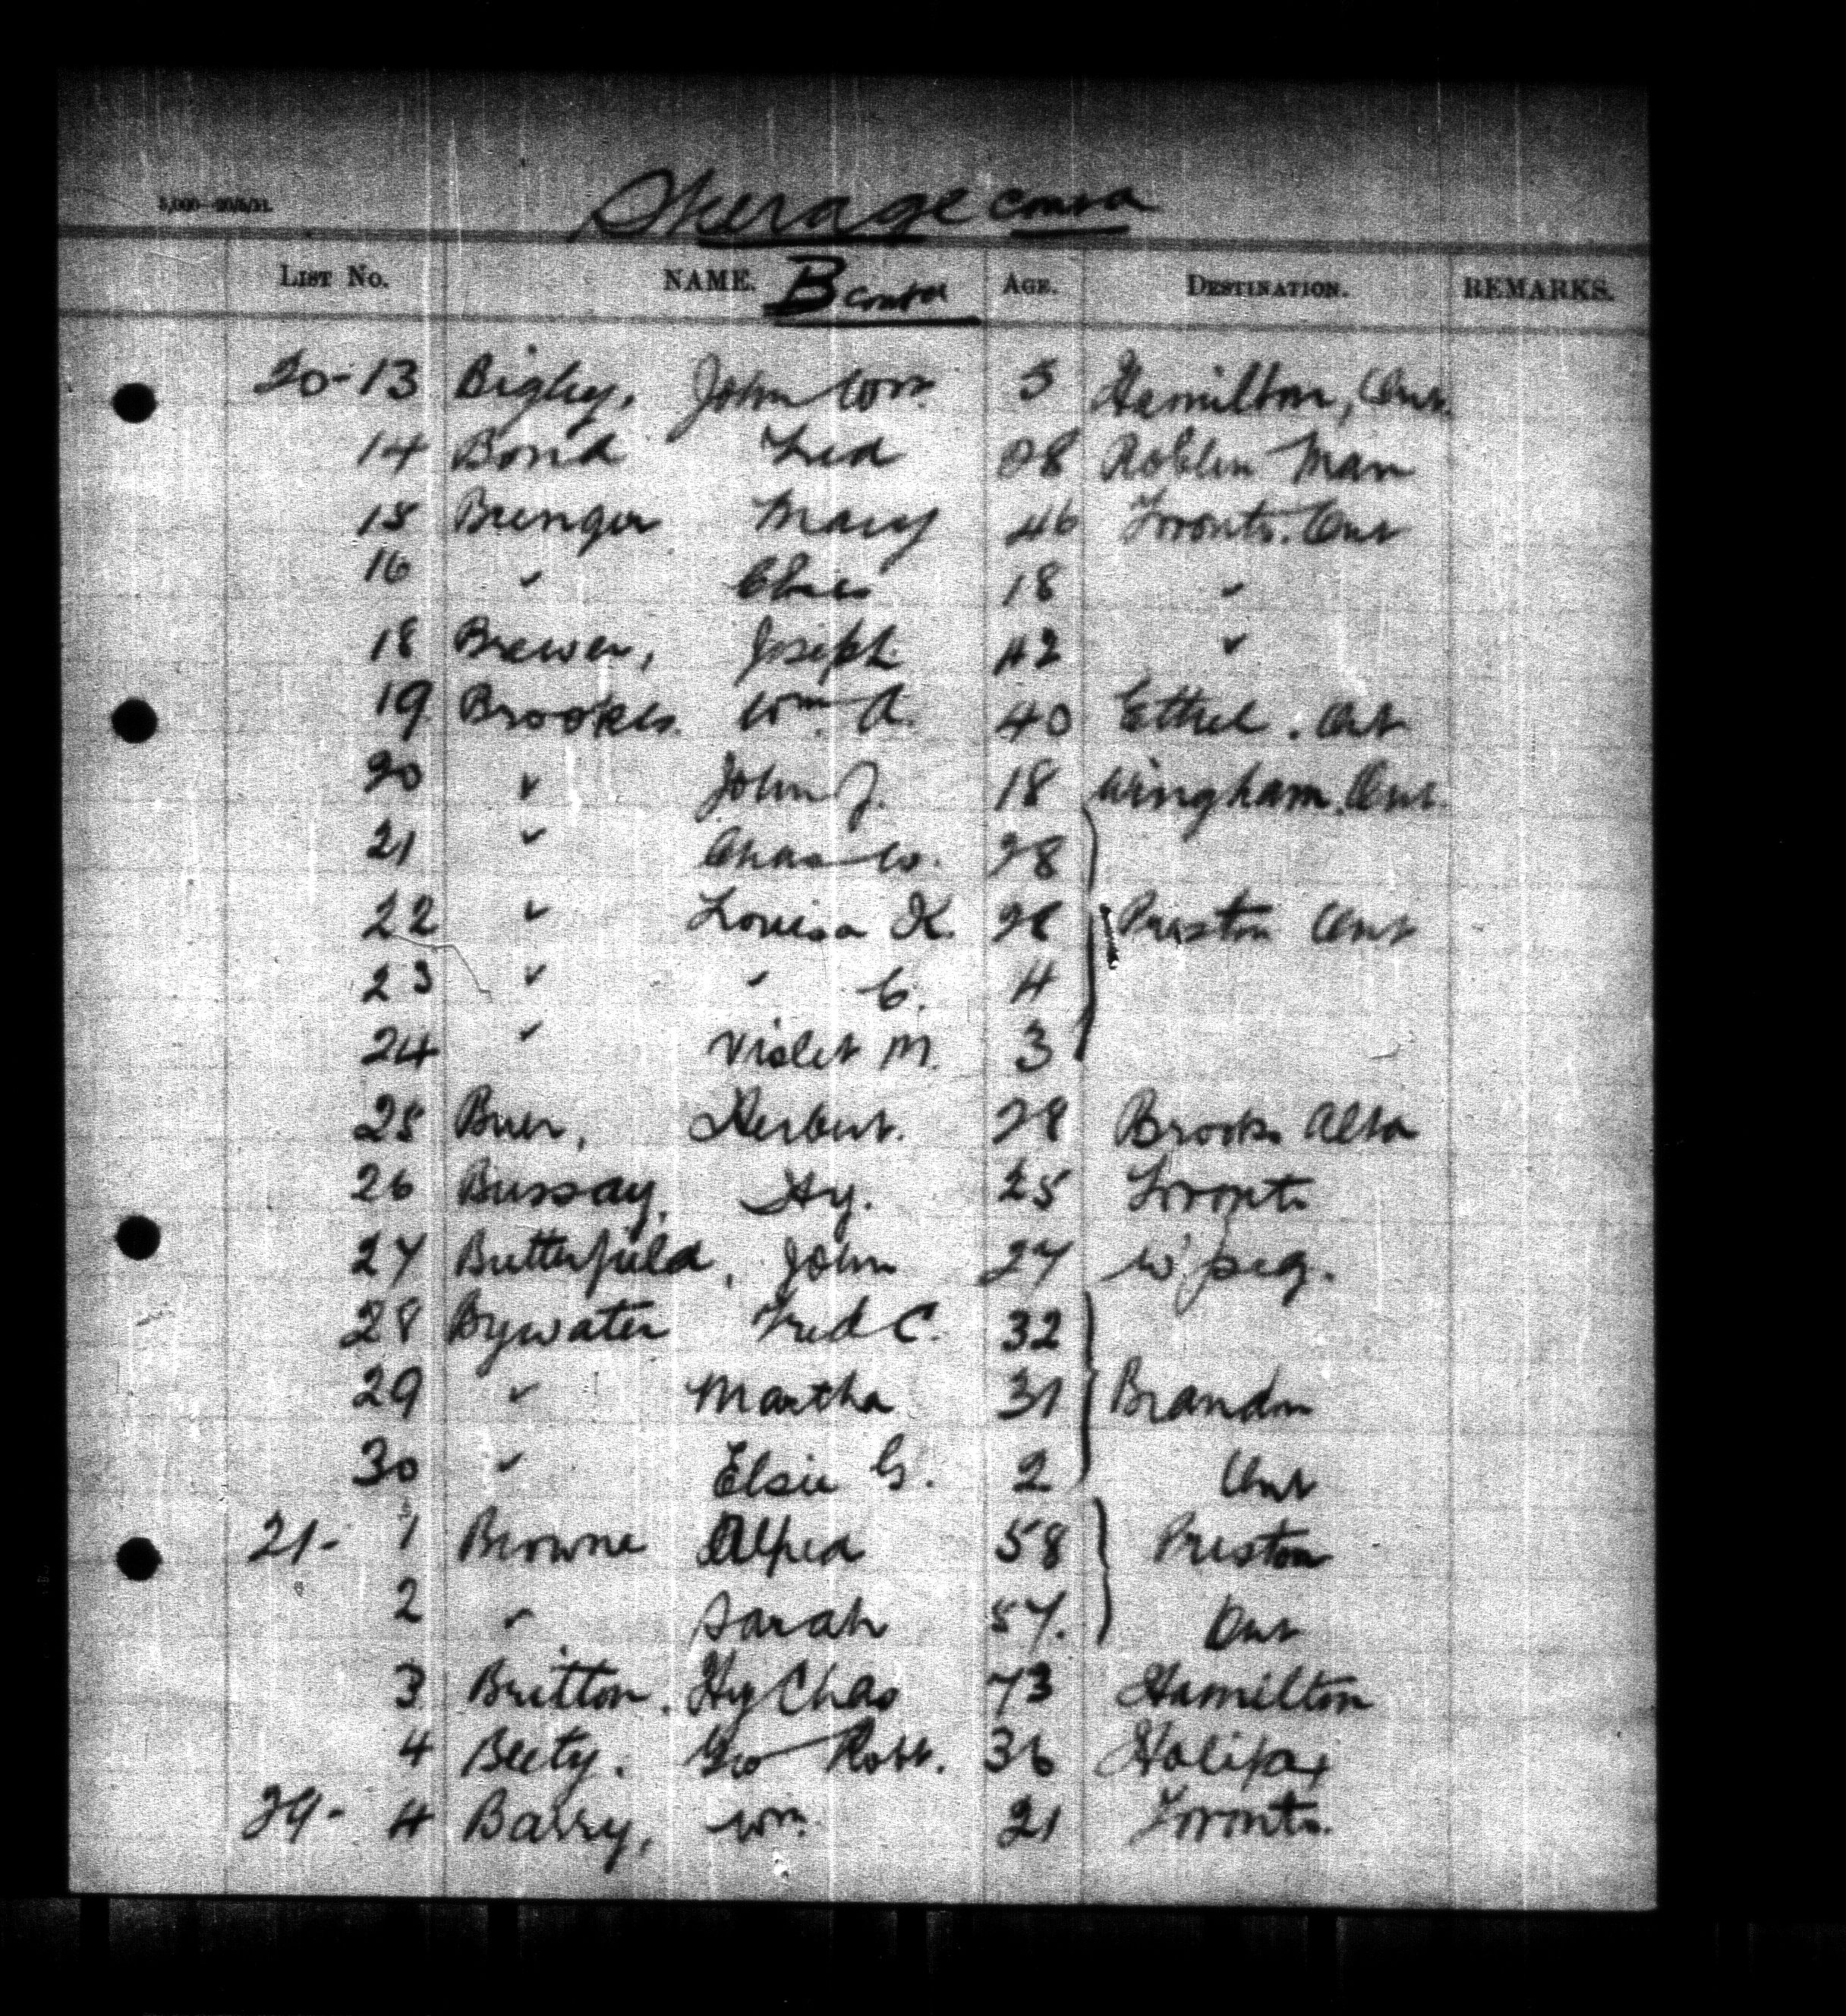 Steerage contd
LIST No. NAME. B contd AGE. DESTINATION. REMARKS.
20-13 Bigley, John Wm. 5 Hamilton, Ont.
14 Bond Fred 28 Roblin Man
15 Brenger Mary 46 Toronto. Ont
16 " 18 "
18 Brewer, Joseph 42 "
19 Brookes. Wm A. 40 Ethel. Ont
20 " John J. 18 Wingham. Ont.
21 " Chas W. 28
22 " Louisa K. 28 Preston Ont
23 " " C. 4
24 " Violet M. 3
25 Buer, Herbert. 28 Brooks Alta
26 Bussay, Hy. 25 Toronto
27 Butterfield, John 27 W'peg.
28 Bywater Fred C. 32
29 " Martha 31 Brandon
30 " Elsie G. 2 Ont
21- 1 Browne Alfred 58 Preston
2 " Sarah 57. Ont
3 Britton. Hy Chas 73 Hamilton
4 Beety. Geo Robt. 36 Halifax
29- 4 Barry, Wm. 21 Toronto.